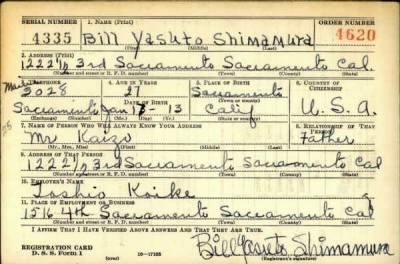 SERIAL NUMBER 1. NAME (Print) ORDER NUMBER
4335 Bill Yasuto Shimamura 4620
(First) (Middle) (Last)
2. ADDRESS (Print)
1222½ 3rd Sacramento Sacramento Cal
(Number and street or R. F. D. number) (Town) (County) (State)
3. TELEPHONE 4. AGE IN YEARS 5. PLACE OF BIRTH 6. COUNTRY OF CITIZENSHIP
Main 2028 27 Sacramento
(Town or county)
DATE OF BIRTH
Sacramento Jan 8 - 13 Calif U.S.A.
(Exchange) (Number) (Mo.) (Day) (Yr.) (State or country)
7. NAME OF PERSON WHO WILL ALWAYS KNOW YOUR ADDRESS 8. RELATIONSHIP OF THAT PERSON
Mr Kaizo Father
(Mr., Mrs., Miss) (First) (Middle) (Last)
9. ADDRESS OF THAT PERSON
1222½ 3rd Sacramento Sacramento Cal
(Number and street or R. F. D. number) (Town) (County) (State)
10. EMPLOYER'S NAME
Toshio Koike
11. PLACE OF EMPLOYMENT OR BUSINESS
1516 4th Sacramento Sacramento Cal
(Number and street or R. F. D. number) (Town) (County) (State)
I AFFIRM THAT I HAVE VERIFIED ABOVE ANSWERS AND THAT THEY ARE TRUE.
REGISTRATION CARD
D. S. S. Form 1 (over) 16—17105 Bill Yasuto Shimamura
(Registrant's signature)